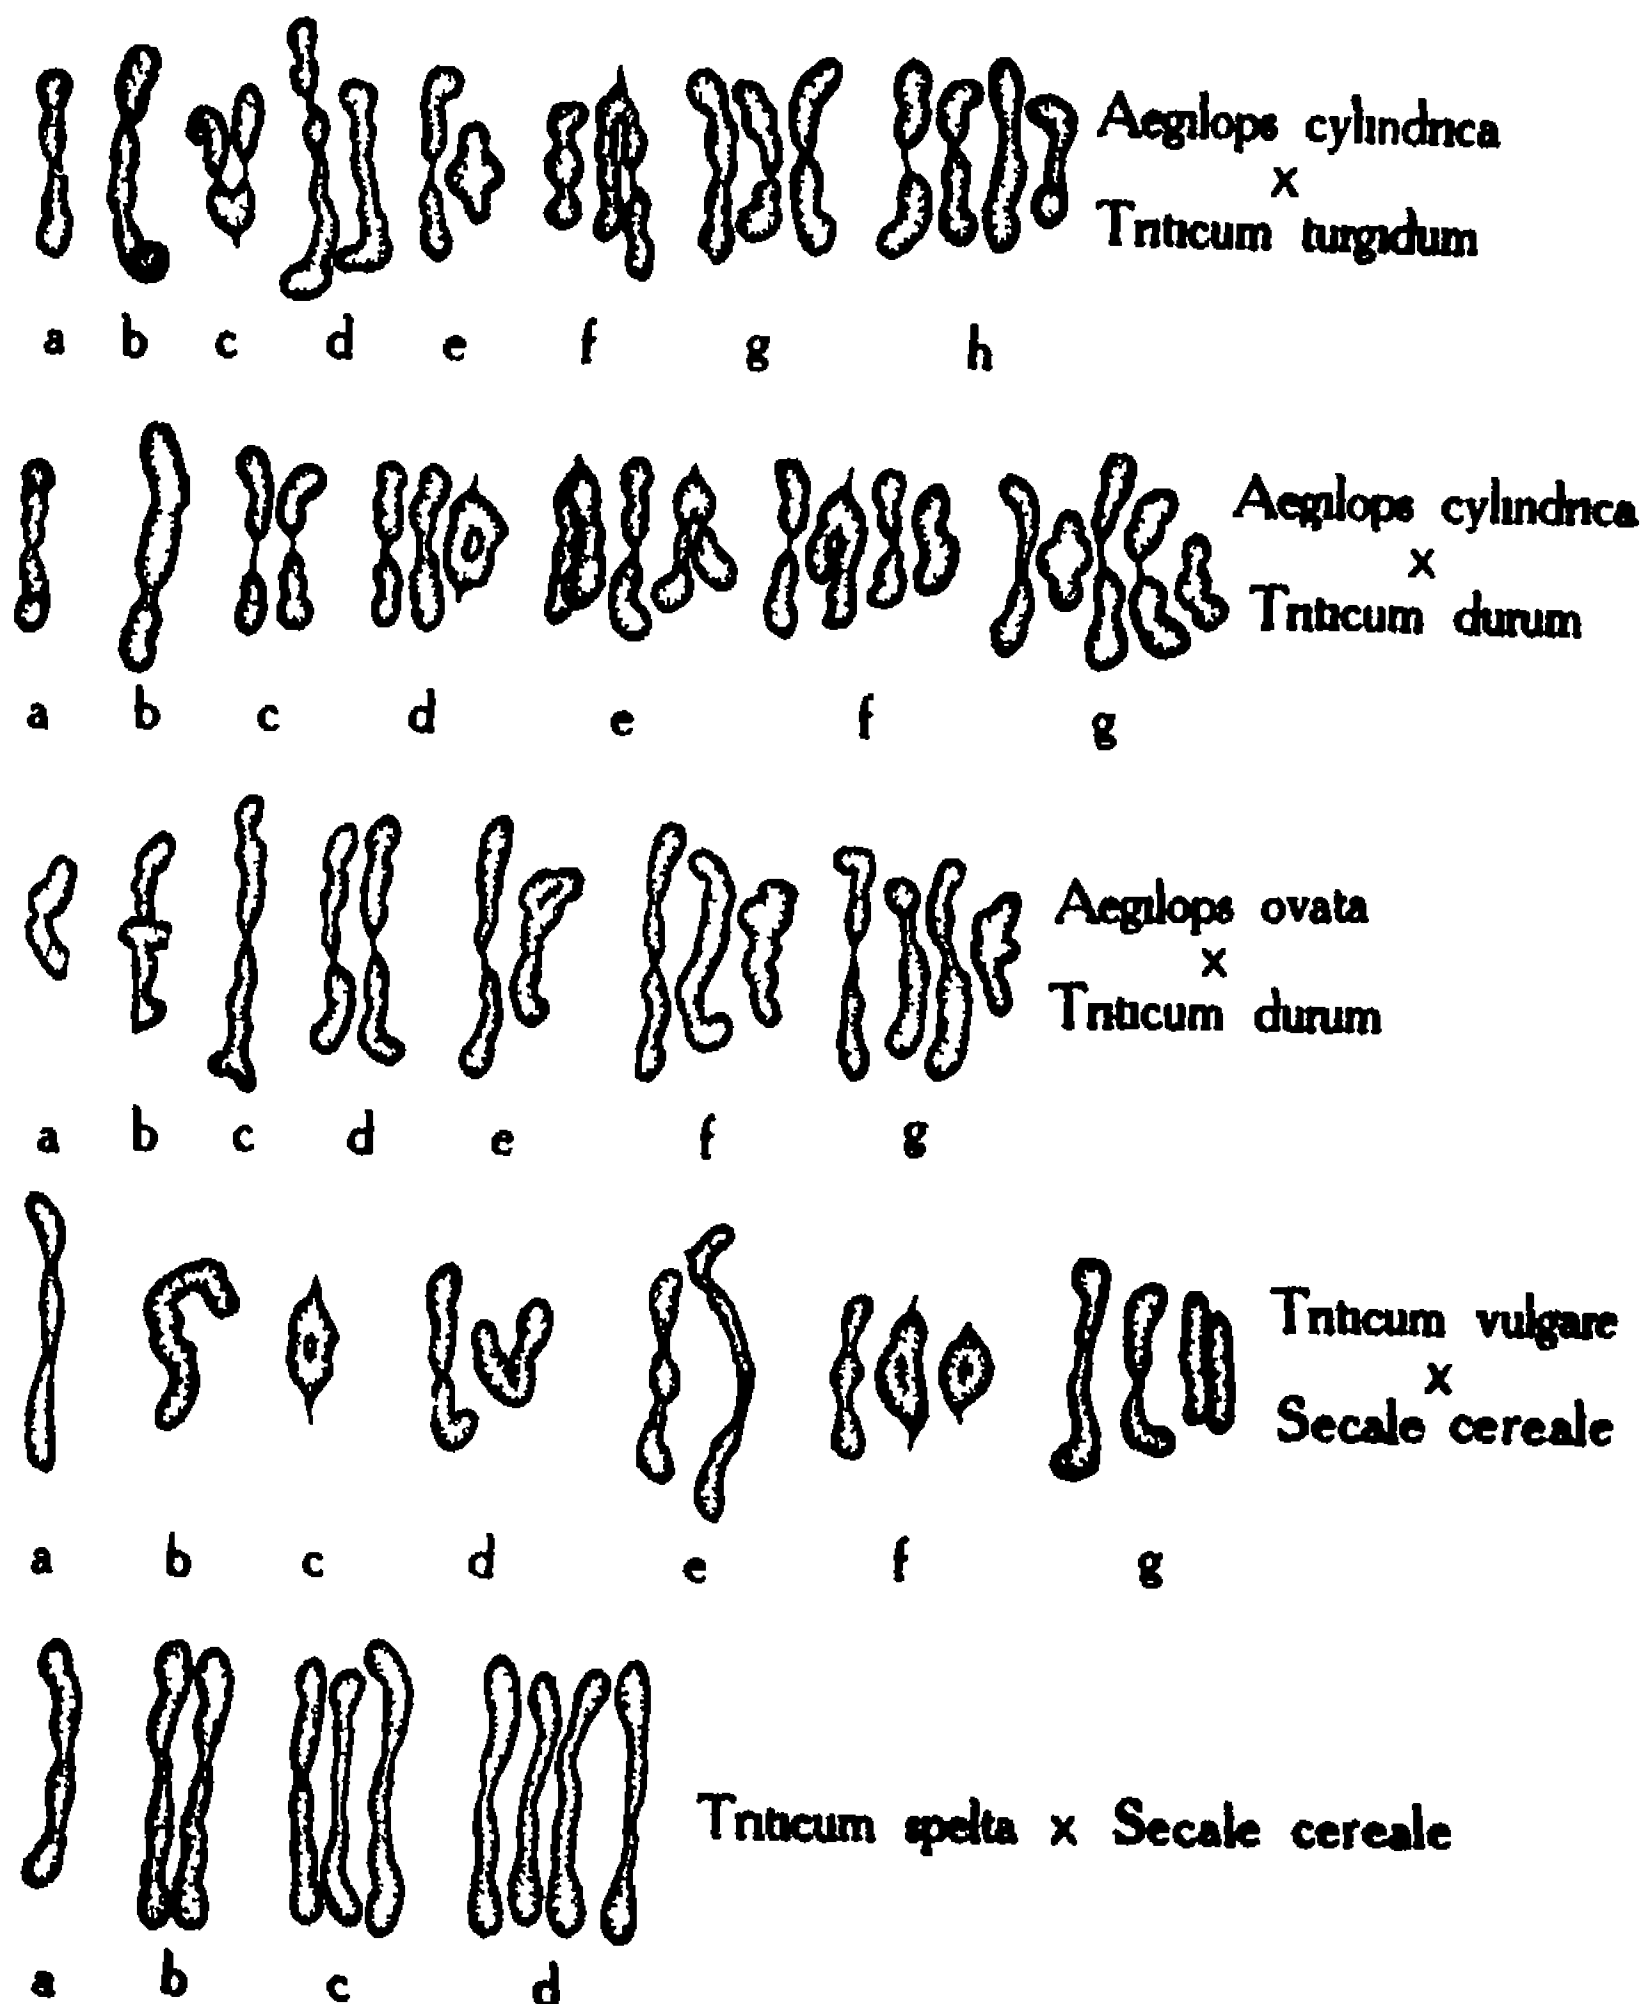 Aegilops cylindrica
x
Triticum turgidum
a b c d e f g h
Aegilops cylindrica
x
Triticum durum
a b c d e f g
Aegilops ovata
x
Triticum durum
a b c d e f g
Triticum vulgare
x
Secale cereale
a b c d e f g
Triticum spelta x Secale cereale
a b c d